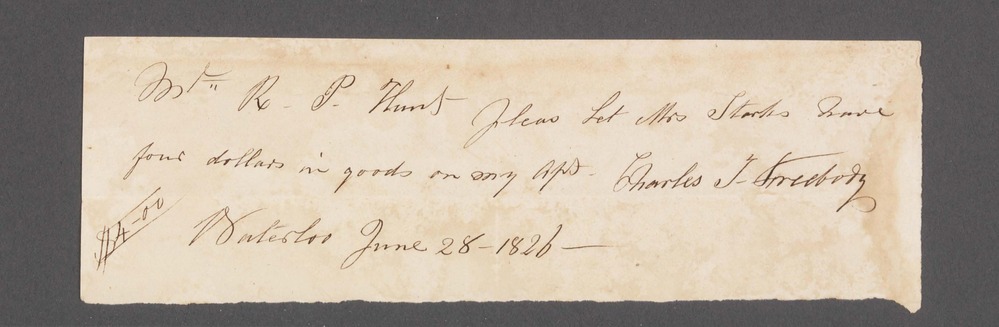 Mr R. P. Hunt Pleas Let Mrs Starks have
four dollars in goods on my apt. Charles J. Freebody
$4-00
Waterloo June 28 - 1826 -